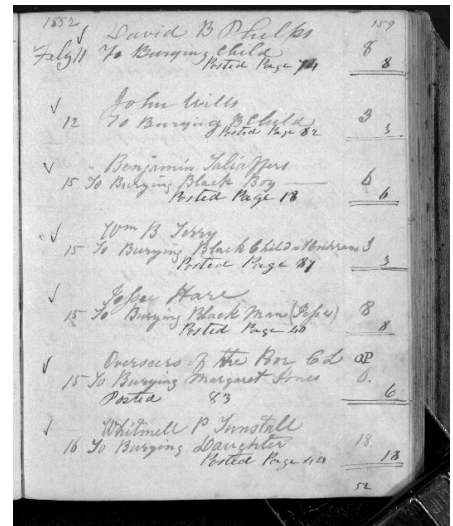 1852 159
David B Phelps
July 11 To Burying Child 8
Posted Page 74 8
John Wills
12 To Burying B Child 3
Posted Page 82 3
Benjamin Taliaferro
15 To Burying Black Boy 6
Posted Page 18 6
Wm B Terry
15 To Burying Black Child 3
Posted Page 87 3
Jesse Hare
15 To Burying Black Man (Jesse) 8
Posted Page 40 8
Overseers of the Poor C L OP
15 To Burying Margaret Jones 6.
Posted 83 6
Whitmell P Tunstall
16 To Burying Daughter 18
Posted Page 18
52